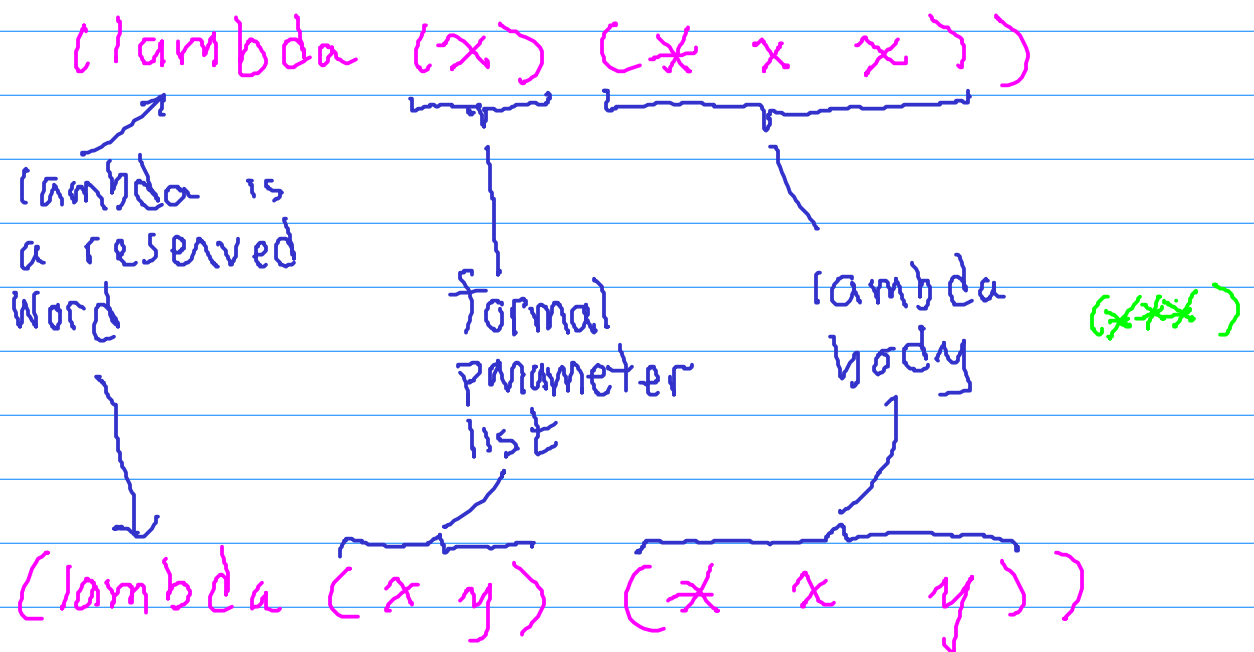 (lambda (x) (* x x))
lambda is
a reserved
word
formal
parameter
list
lambda
body
(***)
(lambda (x y) (* x y))